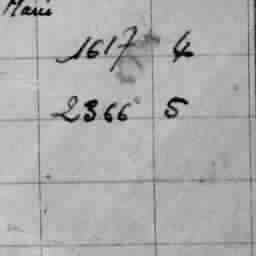 Marie
1617 4
2366 5